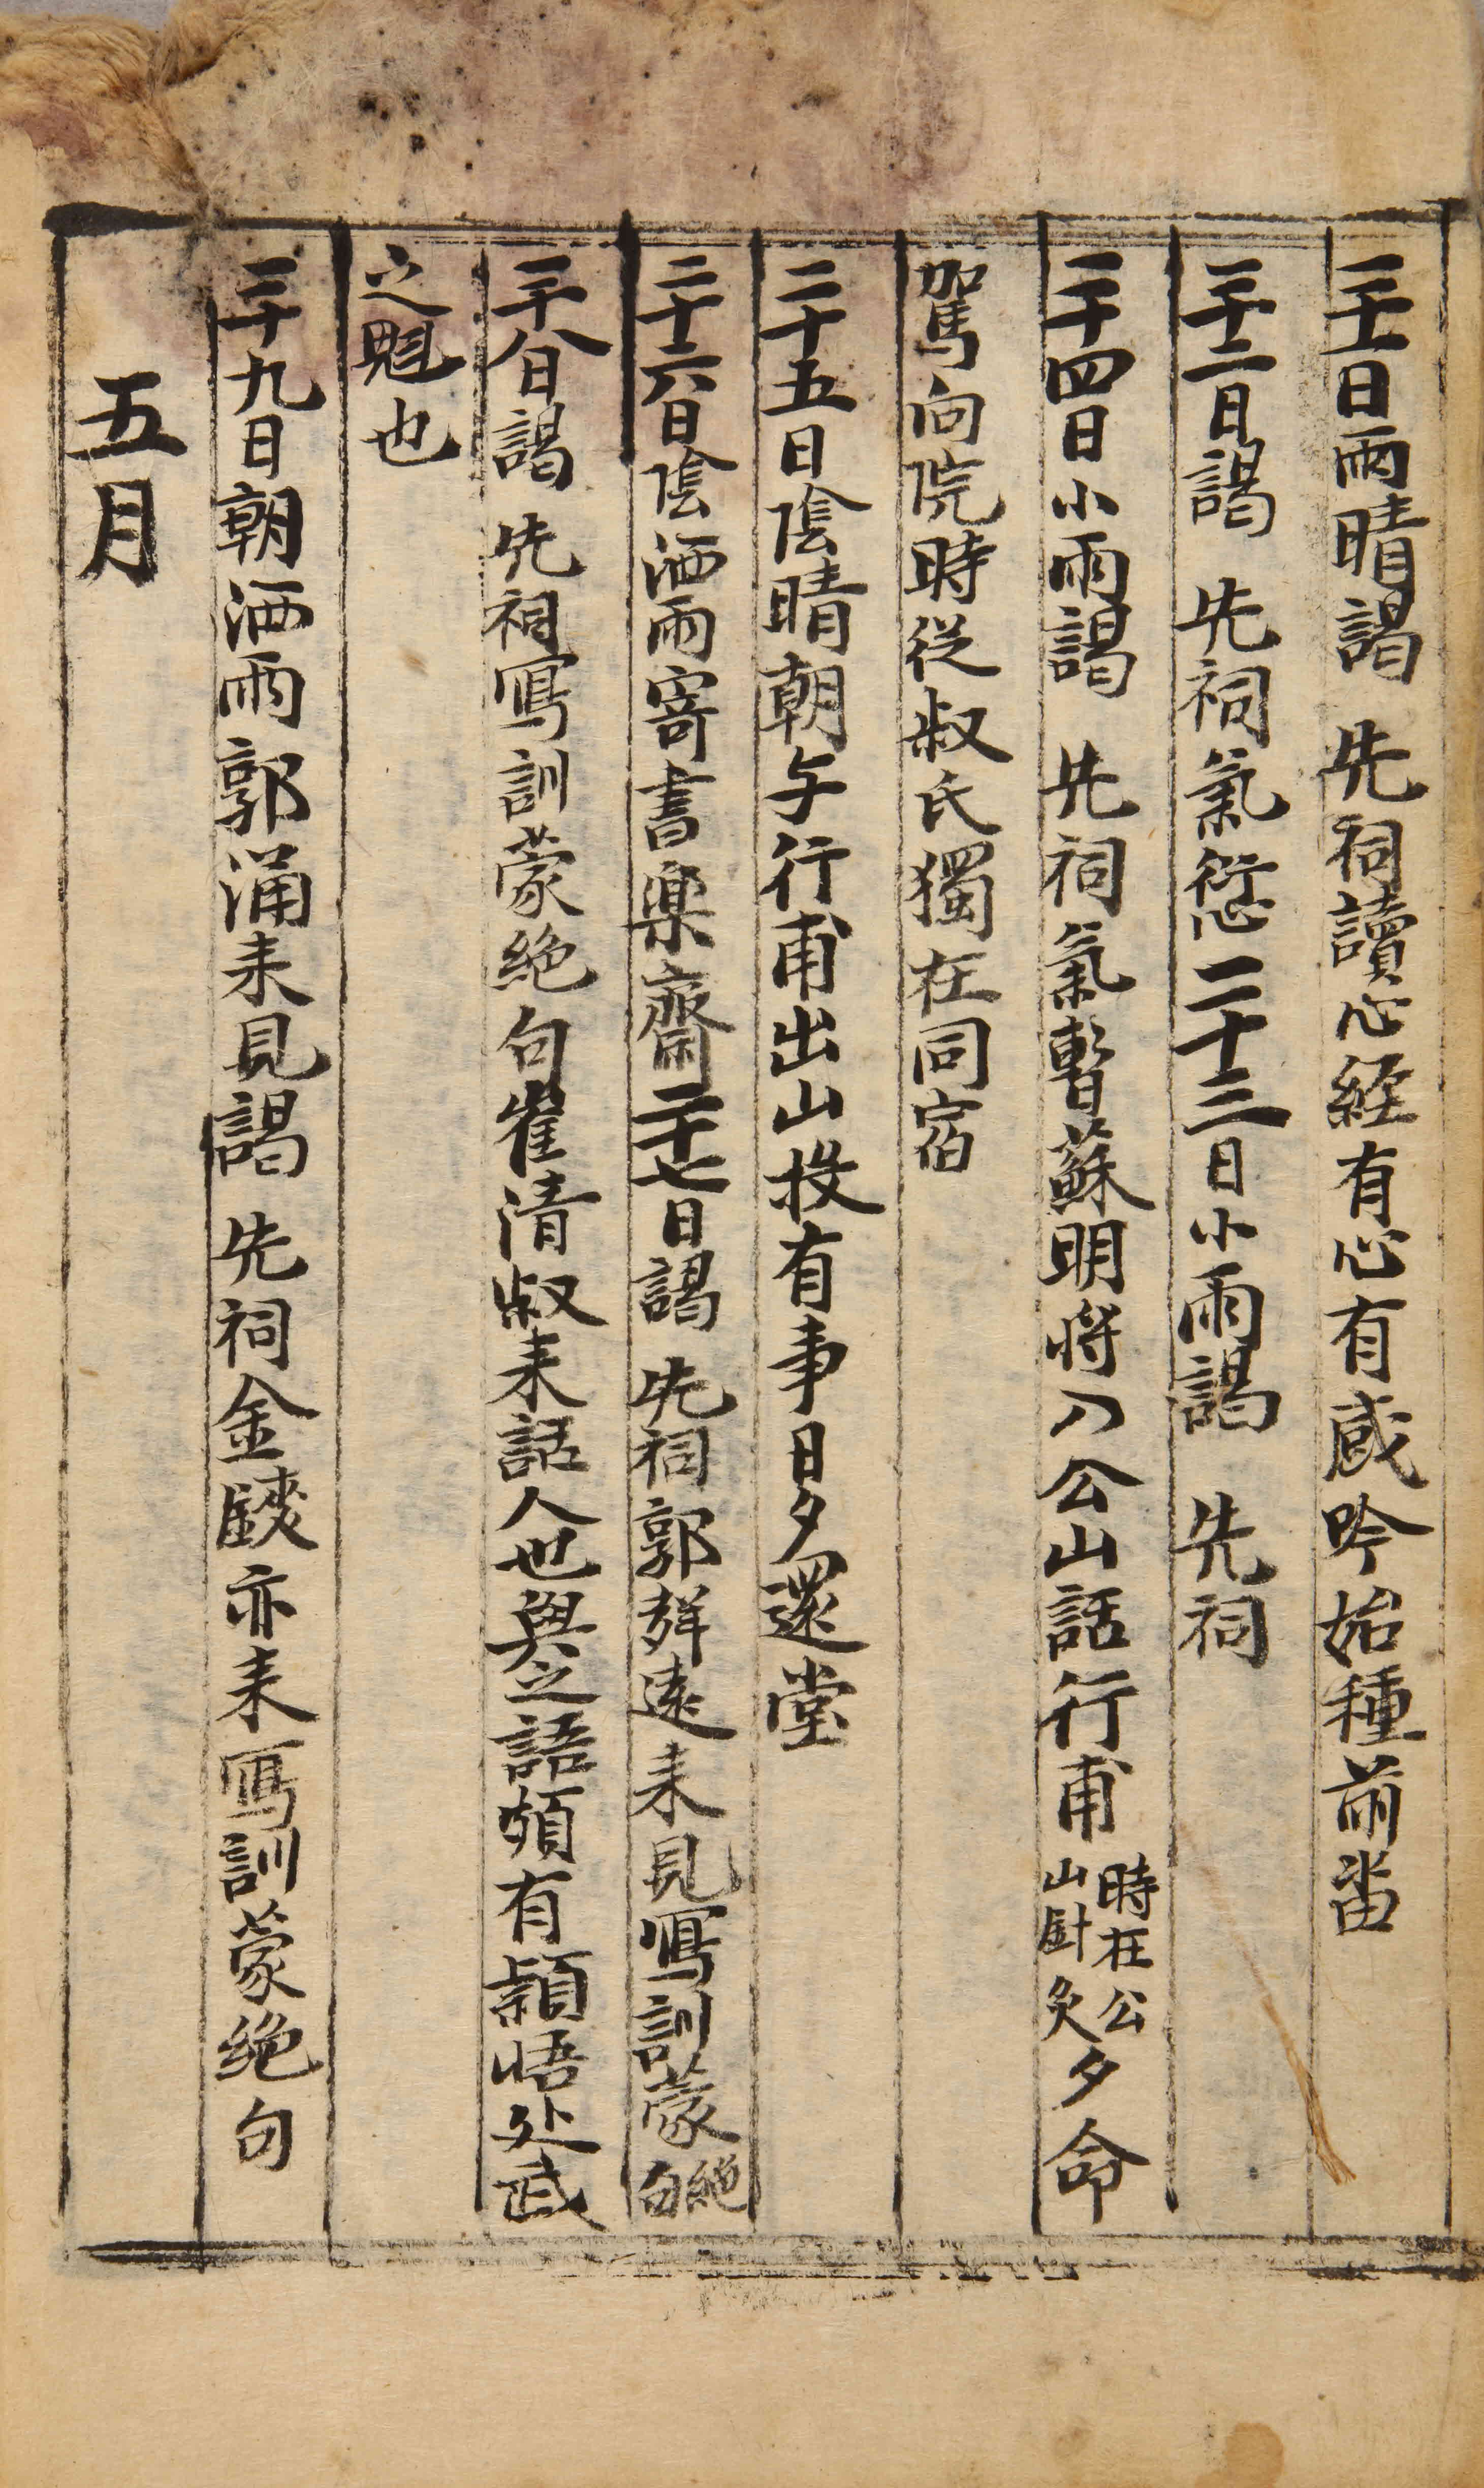 二十一日雨晴謁 先祠讀心経有心有感吟始種前畓
二十二日謁 先祠氣愆二十三日小雨謁 先祠
二十四日小雨謁 先祠氣暫蘇明将入公山話行甫時在公山針灸夕命
駕向院時従叔氏獨在同宿
二十五日陰晴朝与行甫出山投有事日夕還堂
二十六日陰洒雨寄書樂齋二十七日謁 先祠郭遠来見寫訓蒙絶句
二十八日謁 先祠寫訓蒙絶句崔清叔来話人也與之語頗有穎悟处武
之魁也
二十九日朝洒雨郭涌来見謁 先祠金鋑亦来寫訓蒙絶句
五月